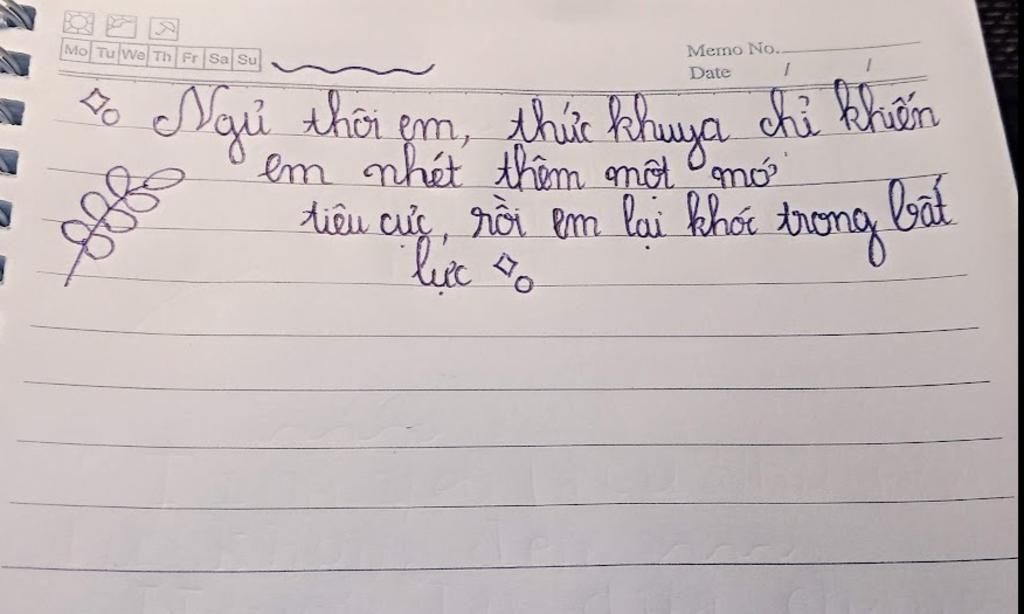 Mo Tu We Th Fr Sa Su
Memo No.
Date / /
Ngủ thôi em, thức khuya chỉ khiến
em nhét thêm một mớ
tiêu cực, rồi em lại khóc trong bất
lực